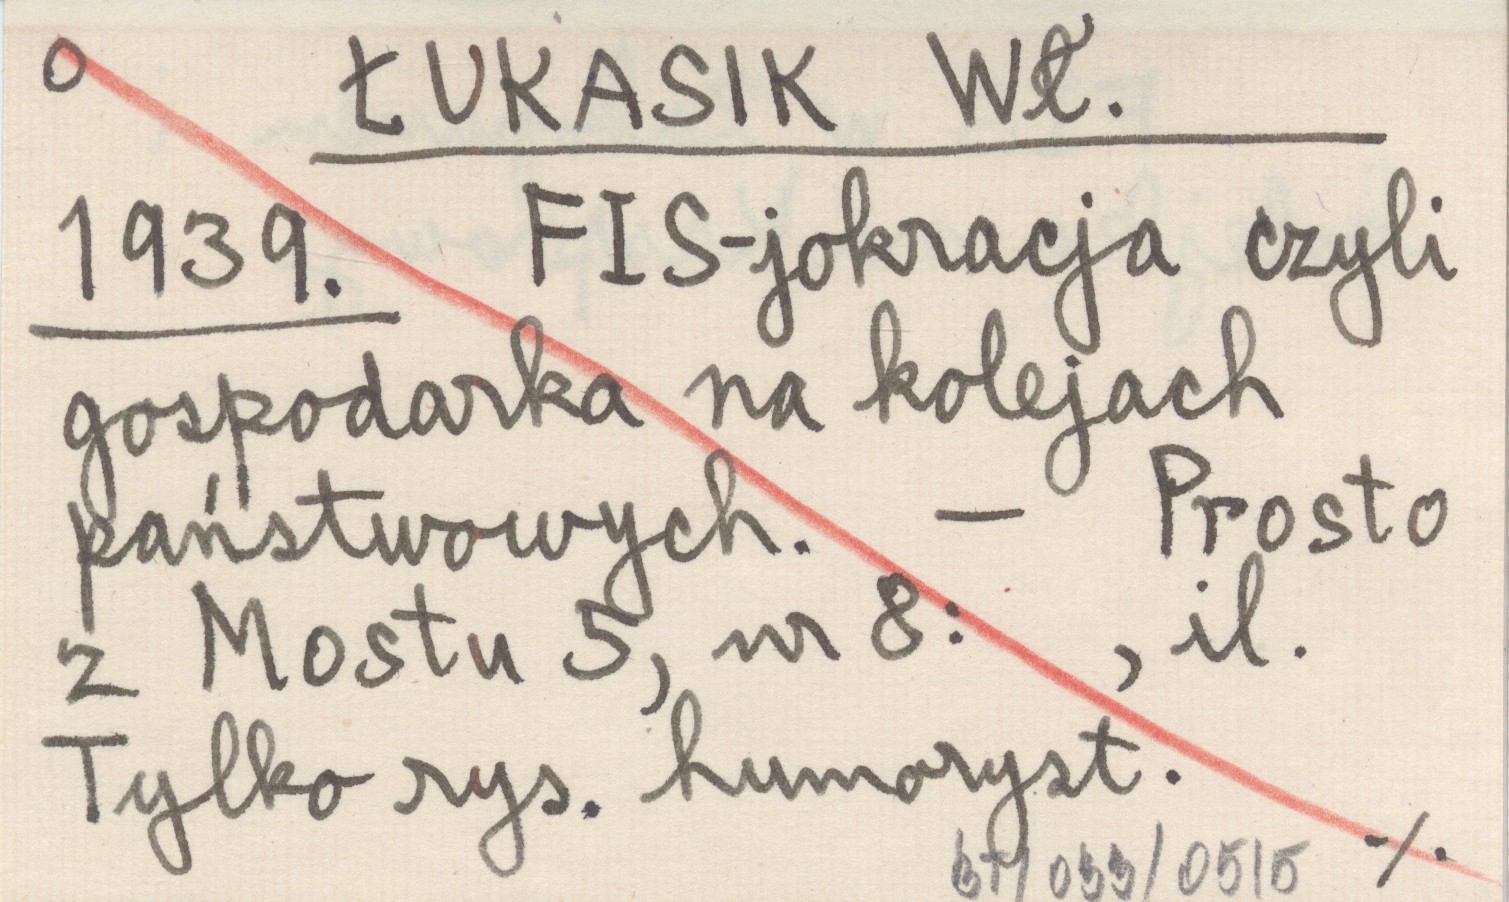 o ŁUKASIK Wł.
1939. FIS-jokracja czyli
gospodarka na kolejach
państwowych. — Prosto
z Mostu 5, nr 8: , il.
Tylko rys. humoryst.
-/.